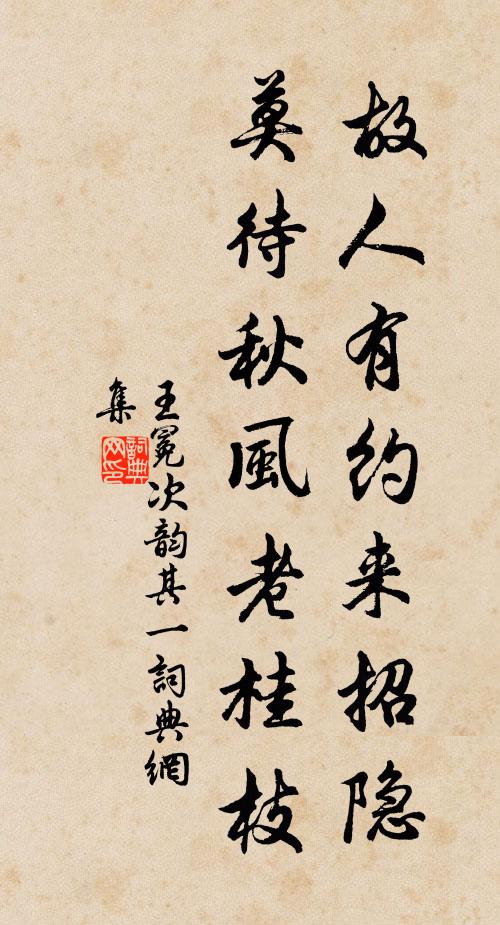 故人有约来招隐
莫待秋風老桂枝
王冕次韵其一詞典網
集
詞典网印